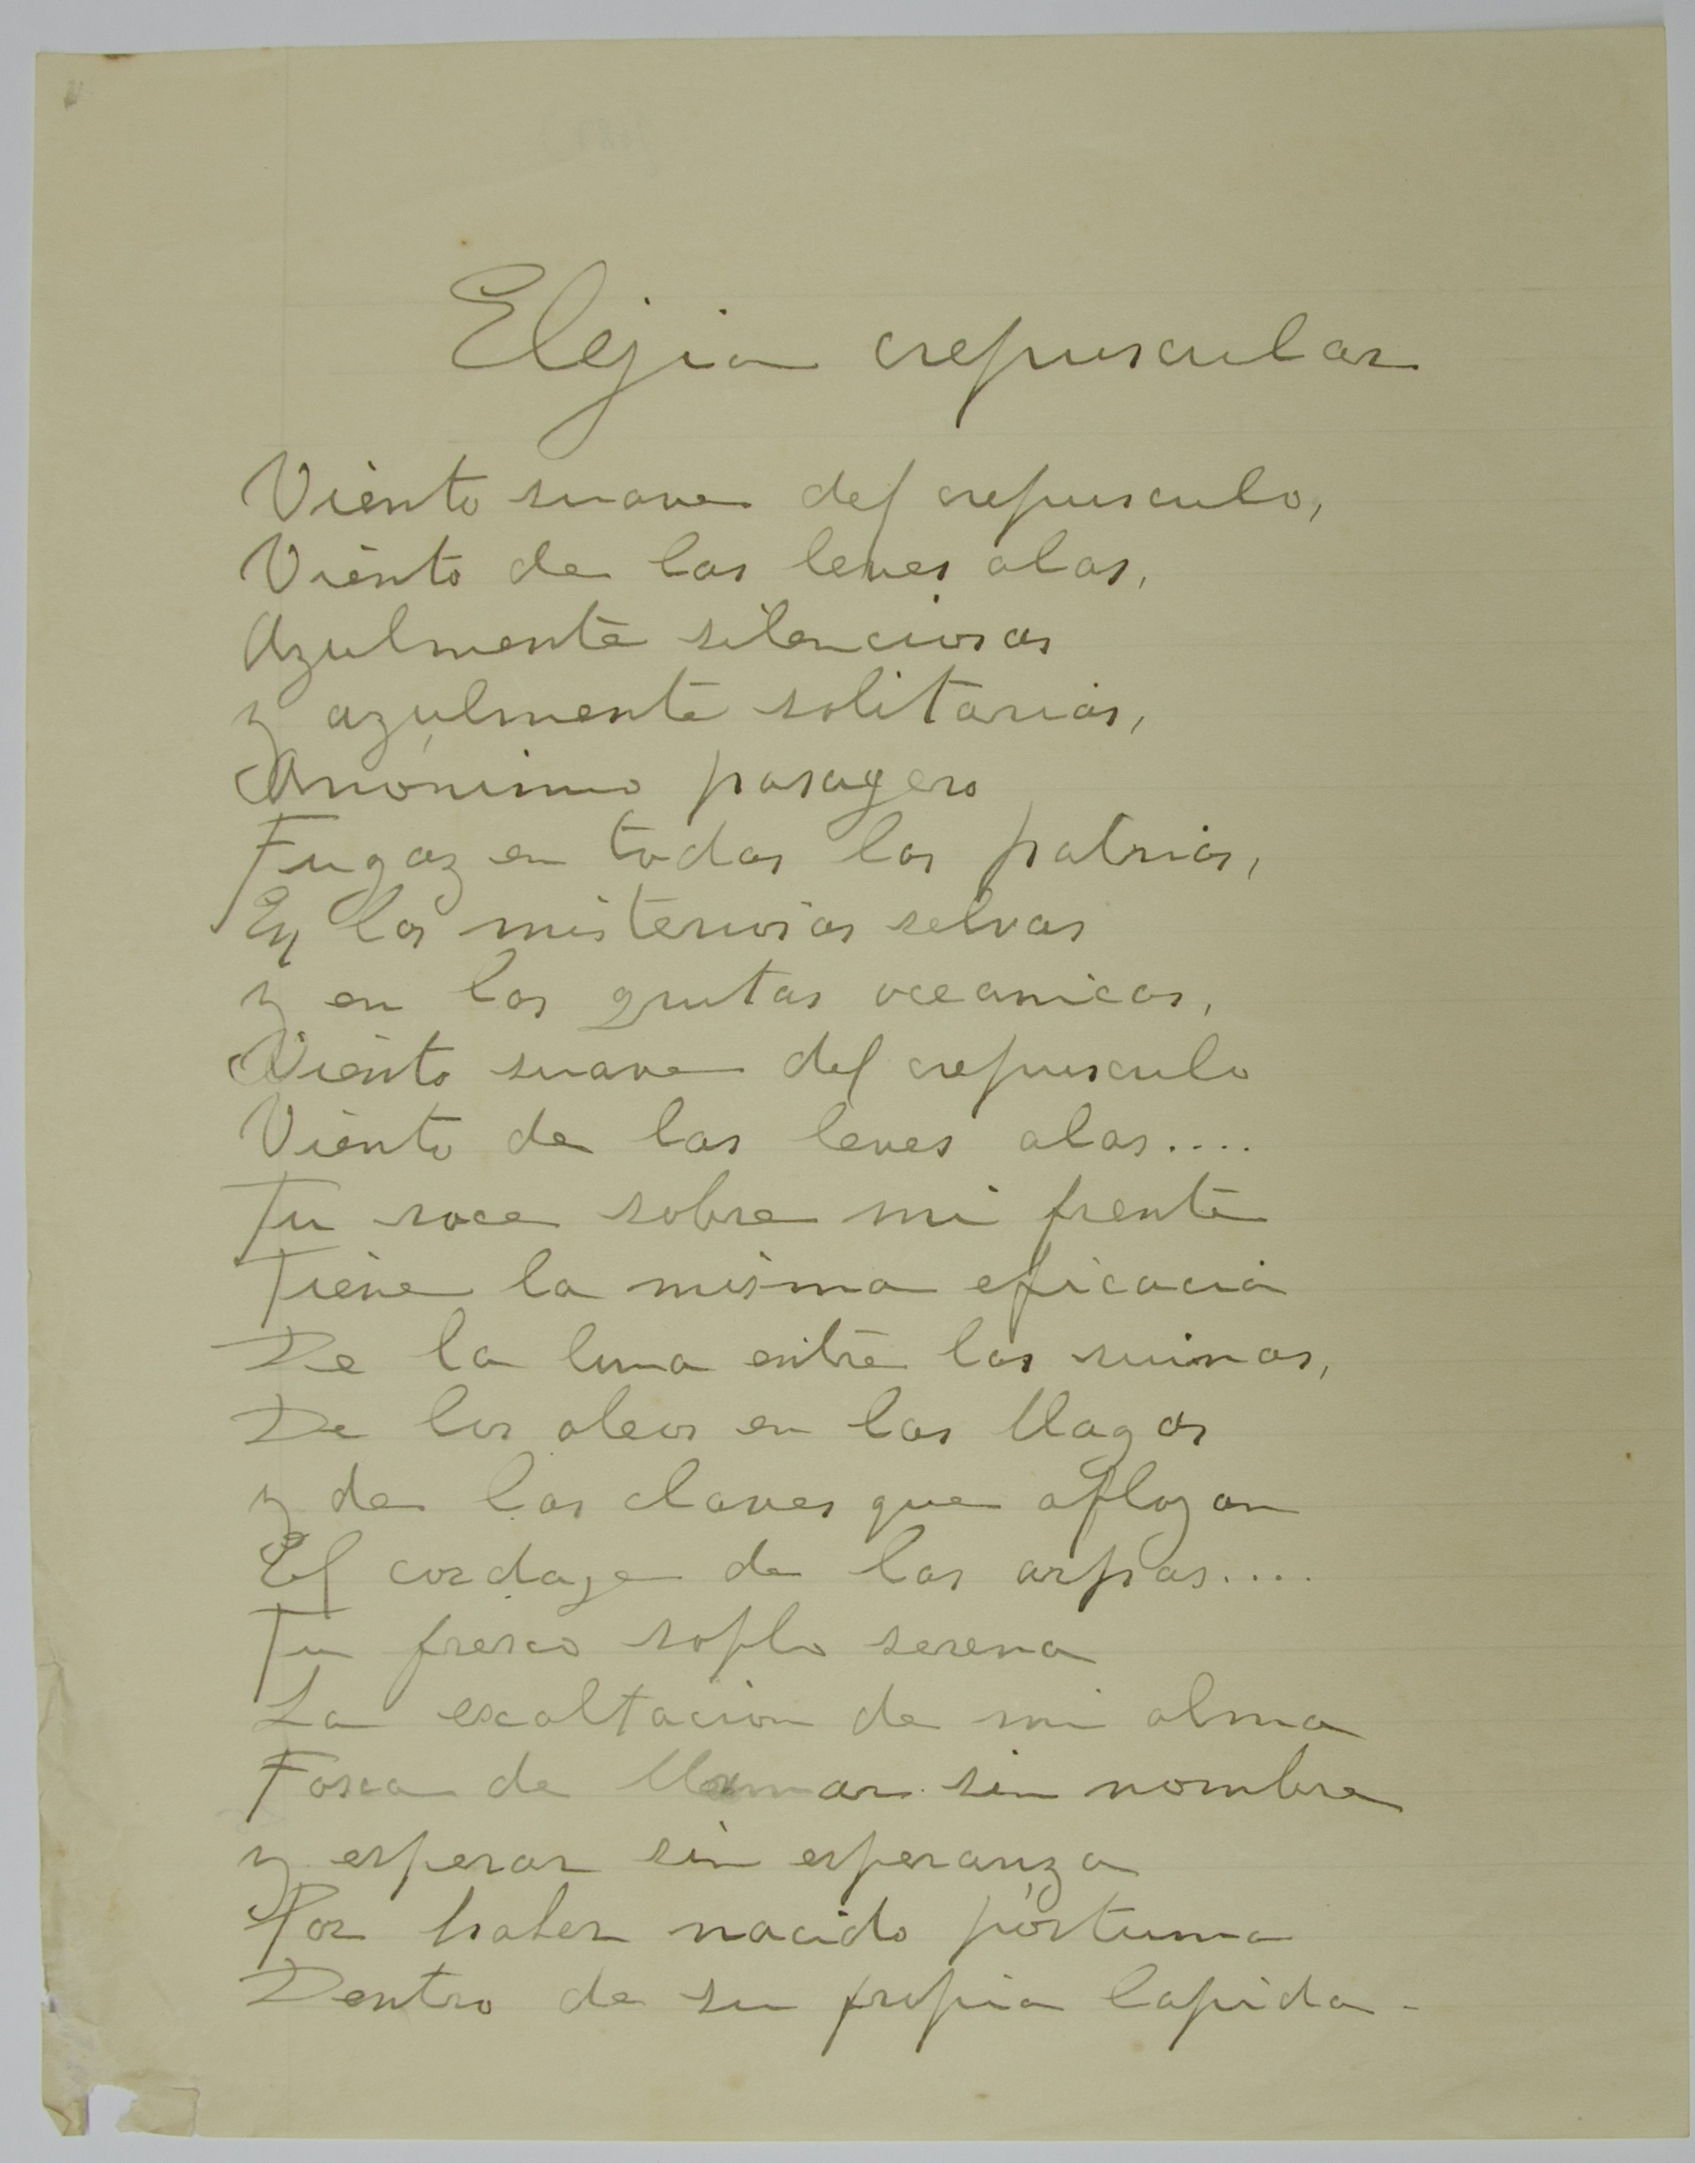 Elejia crepuscular
Viento suave del crepusculo,
Viento de las leves alas,
Azulmente silenciosas
y azulmente solitarias,
Anónimo pasagero
Fugaz en todas las patrias,
En las misteriosas selvas
y en las grutas oceanicas,
Viento suave del crepusculo
Viento de las leves alas....
Tu roce sobre mi frente
Tiene la misma eficacia
De la luna entre las ruinas,
De los oleos en las llagas
y de las claves que aflojan
El cordage de las arpas....
Tu fresco soplo serena
La exaltacion de mi alma
Fosca de llamar sin nombre
y esperar sin esperanza
Por haber nacido póstuma
Dentro de su propia lapida -